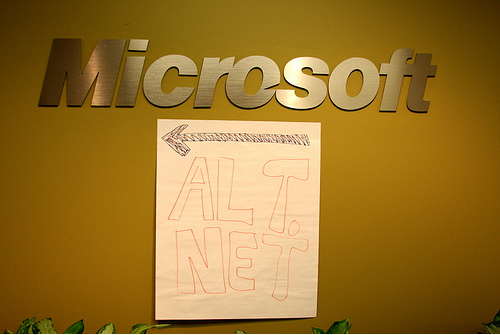 Microsoft
ALT.
NET